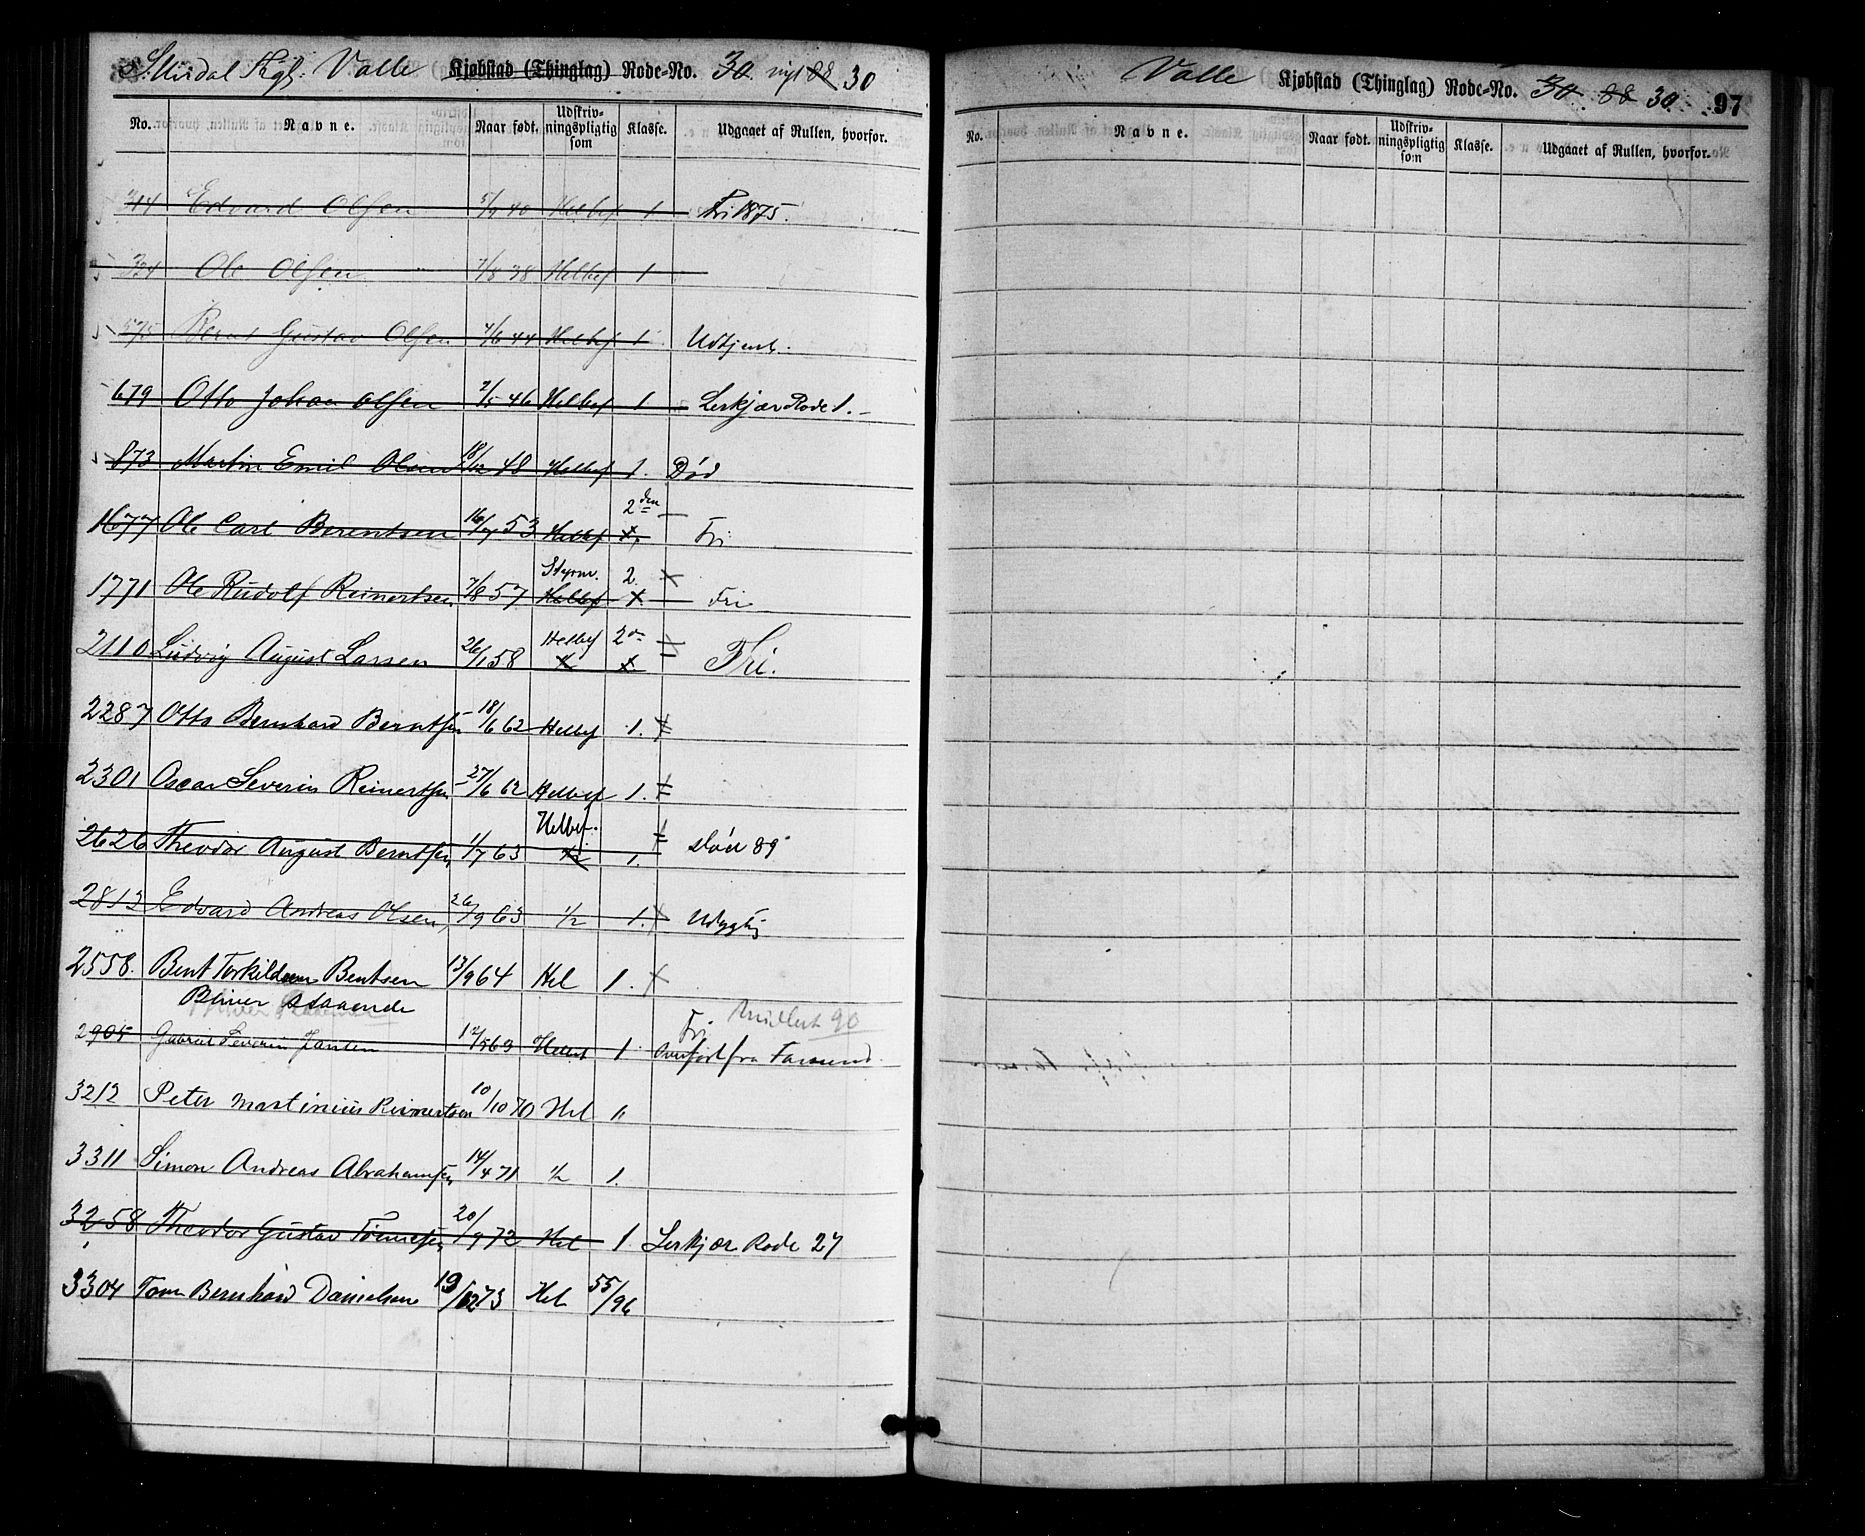 S. Undal Thgl: Valle Kjøbstad (Thinglag) Rode-No. 30. nyt 88 30
No. Navne. Naar født. Udskriv-ningspligtig som Klasse. Udgaaet af Rullen, hvorfor.
344 Edvard Olsen 5/9 40 Helbef 1 Fri 1875.
334 Ole Olsen 7/8 38 Helbef 1
575 Bernt Gustav Olsen 4/6 44 Helbef 1 Udtjent.
679 Otto Johan Olsen 2/5 46 Helbef 1 Lerkjær Rode 1.
873 Martin Emil Olsen 18/12 48 Helbef 1. Død
2den
1677 Ole Carl Berentsen 16/7 53 Helbef Fri
Styrm. 2.
1771 Ole Rudolf Reinertsen 7/8 57 Helbef Fri
Helbef 2den
2110 Ludvig August Larsen 26/1 58 Fri.
2287 Otto Bernhard Berntsen 18/6 62 Helbef 1.
2301 Oscar Severin Reinertsen 27/6 62 Helbef 1.
Helbef.
2626 Theodor August Berntsen 1/7 63 1. død 89
2813 Edvard Andreas Olsen 26/9 63 1/2 1. Udygtig
2558. Bent Torkildsen Bentsen 13/9 64 Hel 1.
Bliver staaende
Fri 90
2905 Gabriel Severin Jansen 12/5 69 Helbef 1 Overført fra Farsund.
3212 Peter Martinius Reinertsen 10/10 70 Hel "
3311 Simon Andreas Abrahamsen 14/4 71 1/2 1.
3258 Theodor Gustav Tønnesen 20/9 72 Hel 1 Lerkjær Rode 27
3304 Tom Bernhard Danielsen 19/12 73 Hel 55/96
Valle Kjøbstad (Thinglag) Rode-No. 30. 88 30 97
No. Navne. Naar født. Udskriv-ningspligtig som Klasse. Udgaaet af Rullen, hvorfor.